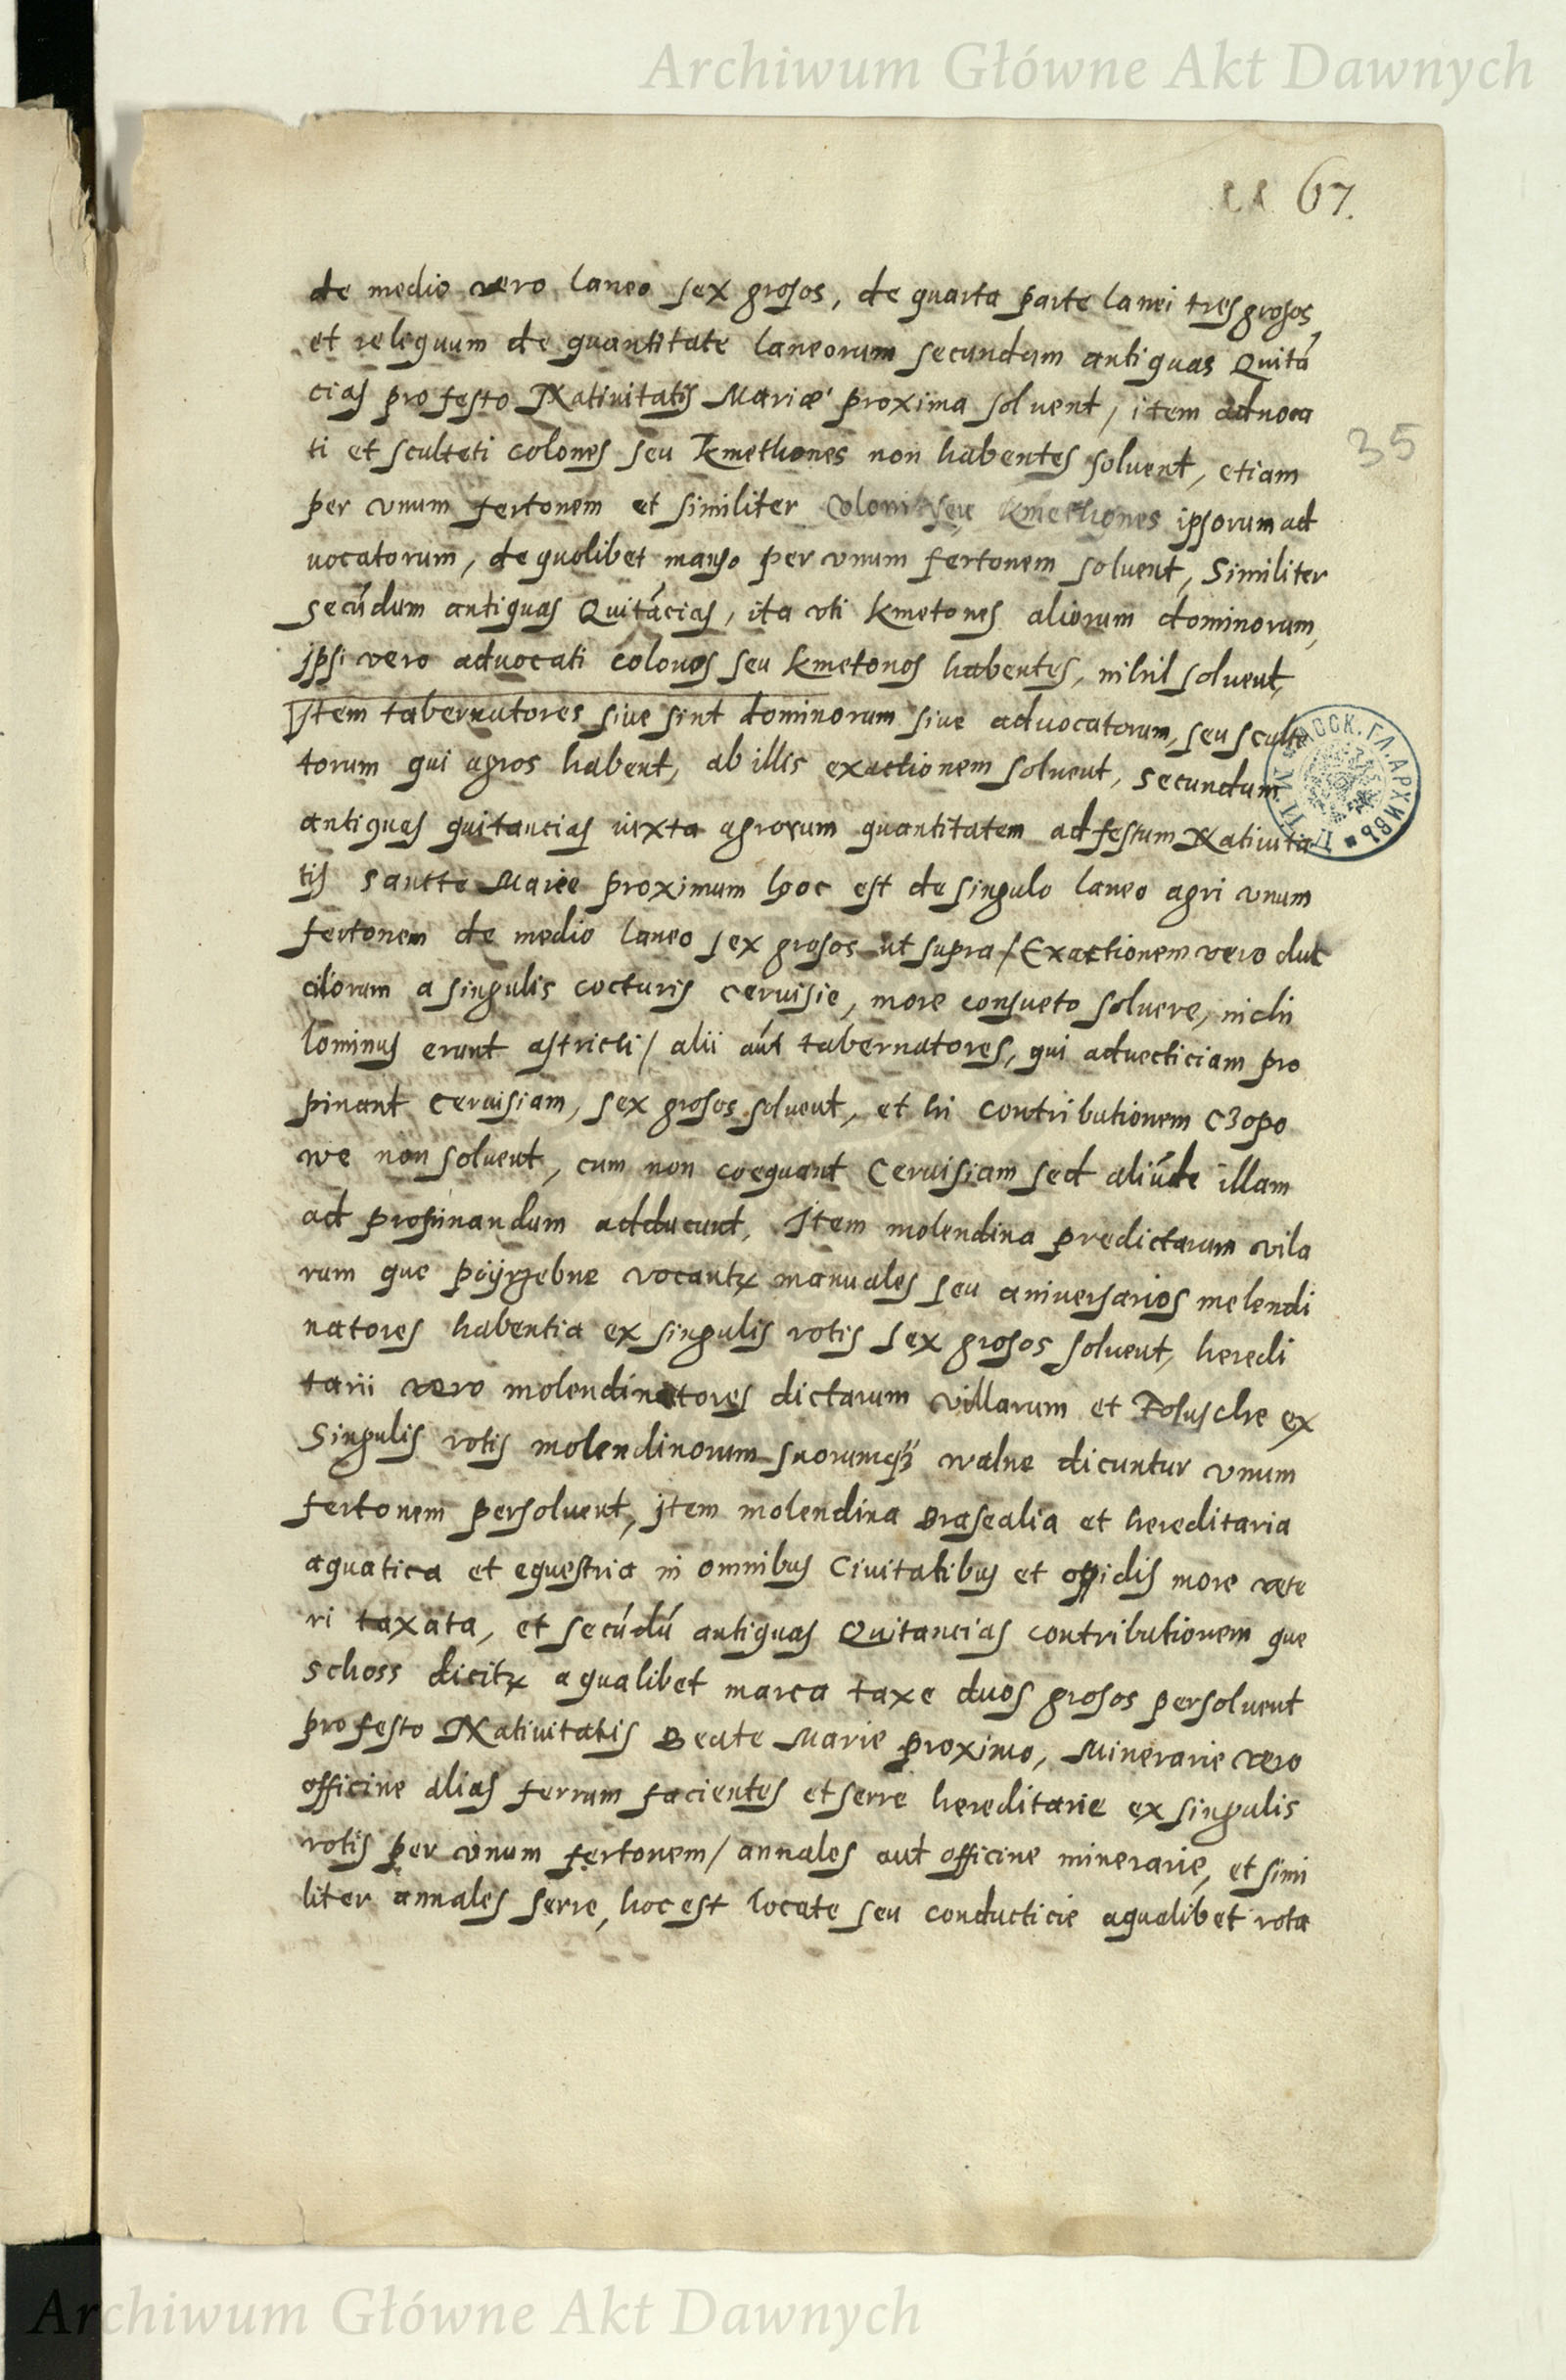 Archiwum Główne Akt Dawnych
67.
de medio vero laneo sex grosos, de quarta parte lanei tres grosos
et relequum de quantitate laneorum secundum antiquas Quitá
cias pro festo Nativitatis Mariæ proxima solvent, item aduoca
ti et sculteti colones seu Kmethones non habentes solvent, etiam
35
per vnum fertonem et similiter Coloni seu Kmethones ipsorum ad
uocatorum, de quolibet manso per vnum fertonem soluent, Similiter
secúdum antiquas Quitácias, ita vti kmetones aliorum dominorum,
jpsi vero aduocati colonos seu kmetonos habentes, nihil soluent,
Jtem tabernatores siue sint dominorum siue aduocatorum, seu sculte
torum qui agros habent, ab illis exactionem soluent, secundum
antiquas quitancias iuxta agrorum quantitatem ad festum Natiuita
tis Sancte Marie proximum hoc est de singulo laneo agri vnum
fertonem de medio laneo sex grosos ut supra / Exactionem vero duc
cilorum a singulis cocturis ceruisie, more consueto soluere, nichi
lominus erunt astricti / alii aút tabernatores, qui aduecticiam pro
pinant ceruisiam, sex grosos soluent, et hi contributionem Czopo
we non soluent, cum non coequant Ceruisiam sed aliúde illam
ad propinandum adducunt, Item molendina predictarum vila
rum que vocantur manuales seu aniuersarios melendi
natores habentia ex singulis rotis sex grosos soluent, heredi
tarii vero molendinatores dictarum villarum et Folusche ex
Singulis rotis molendinorum suorumqz walne dicuntur vnum
fertonem persoluent, jtem molendina Brasealia et hereditaria
aquatica et equestria in omnibus Ciuitatibus et oppidis more vete
ri taxata, et secúdú antiquas Quitancias contributionem que
schoss dicitur a qualibet marca taxe duos grosos persoluent
pro festo Natiuitatis Beate Marie proximo, Minerarie vero
officine alias ferrum facientes et serre hereditarie ex singulis
rotis per vnum fertonem / annales aut officine minerarie, et simi
liter annales serre, hoc est locate seu conducticie a qualibet rota
Archiwum Główne Akt Dawnych